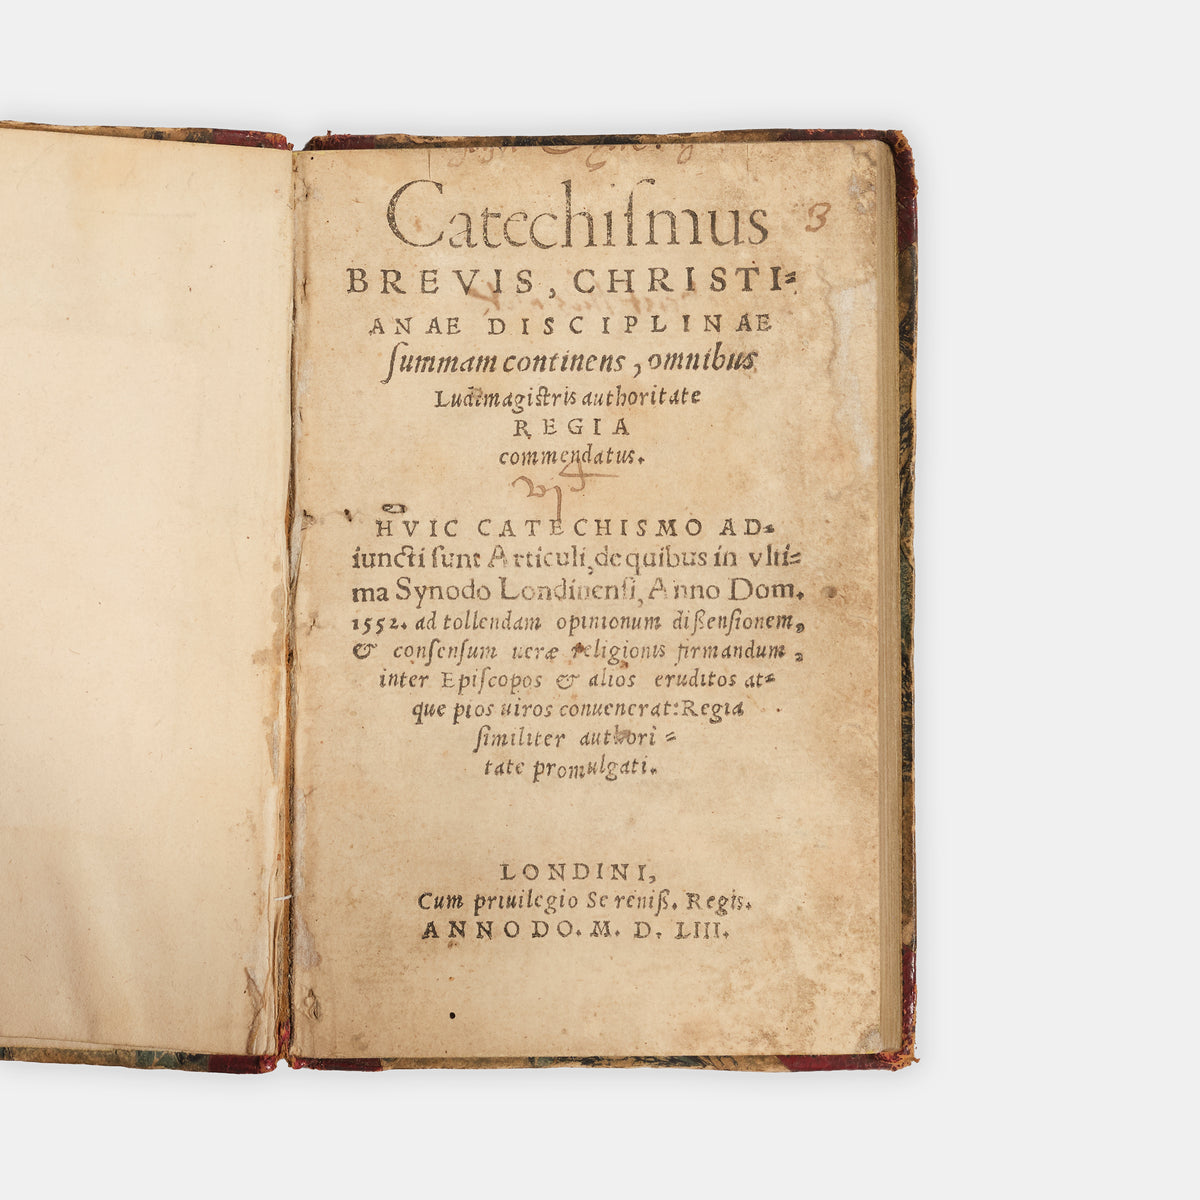 3
Catechiſmus
BREVIS, CHRISTI=
ANAE DISCIPLINAE
ſummam continens, omnibus
Ludimagiſtris authoritate
REGIA
commendatus.
HVIC CATECHISMO AD=
iuncti ſunt Articuli, de quibus in vlti=
ma Synodo Londinenſi, Anno Dom.
1552. ad tollendam opinionum dißenſionem,
& conſenſum ueræ religionis firmandum,
inter Epiſcopos & alios eruditos at=
que pios uiros conuenerat: Regia
ſimiliter authori=
tate promulgati.
LONDINI,
Cum priuilegio Sereniß. Regis.
ANNO DO. M. D. LIII.